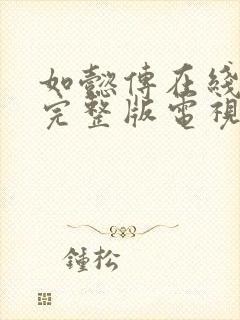 如懿傳在綫
完整版電視
鍾松